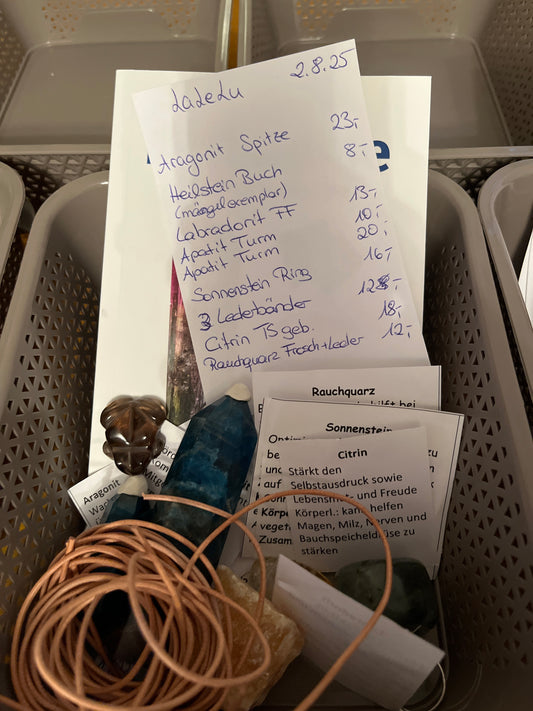 LaLeLu 2.8.25
Aragonit Spitze 23,-
Heilstein Buch 8,-
(mängelexemplar)
Labradorit FF 13,-
Apatit Turm 10,-
Apatit Turm 20,-
Sonnenstein Ring 16,-
3 Lederbänder 12,-
Citrin TS geb. 18,-
Rauchquarz Frosch+Leder 12,-
e
Rauchquarz
hilft bei
Sonnenstein
Citrin
Stärkt den
Selbstausdruck sowie
Lebensmut und Freude
Körperl.: kann helfen
Magen, Milz, Nerven und
Bauchspeicheldrüse zu
stärken
Aragonit